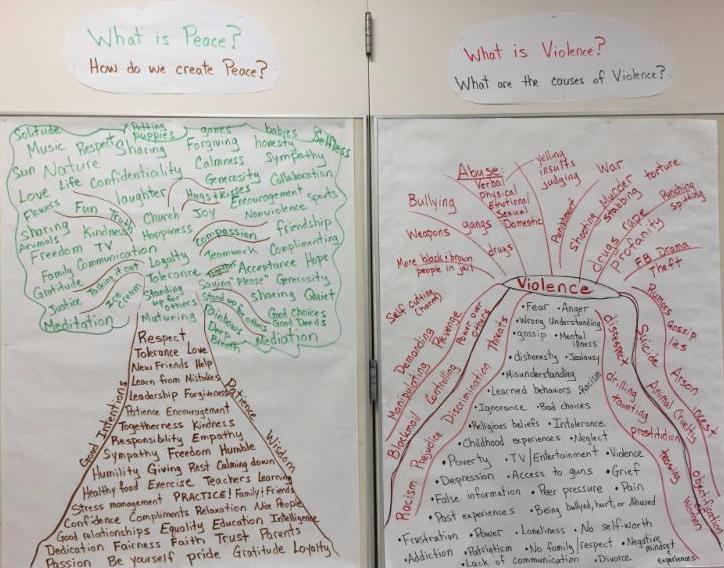 What is Peace?
How do we create Peace?
What is Violence?
What are the causes of Violence?
Solitude
Petting puppies
games
babies
Selfless
Music
Respect
Sharing
Forgiving
honesty
Sun
Nature
Calmness
Sympathy
Love
Life
Confidentiality
Generosity
Collaboration
Flowers
Fun
Truth
laughter
Hugs & Kisses
Encouragement
sports
Sharing
Kindness
Church
Joy
Nonviolence
Animals
Happiness
compassion
friendship
Freedom
TV
Teamwork
Complimenting
Family
Communication
Loyalty
Acceptance
Hope
Gratitude
Talking it out
Tolerance
Saying "Please"
Generosity
Justice
Ice Cream
Standing up for others
Stand up for others
sharing
Quiet
Meditation
Maturing
Rainbows
Good Choices
Good Deeds
Deep Breath
Mediation
Respect
Tolerance Love
New Friends Help
Learn from Mistakes
Leadership Forgiveness
Patience Encouragement
Togetherness Kindness
Responsibility Empathy
Sympathy Freedom Humble
Humility Giving Rest Calming down
Healthy food Exercise Teachers Learning
Stress management PRACTICE! Family & Friends
Confidence Compliments Relaxation Nice People
Good relationships Equality Education Intelligence
Dedication Fairness Faith Trust Parents
Passion Be yourself pride Gratitude Loyalty
Good Intentions
Patience
Wisdom
Abuse:
Verbal
physical
Emotional
Sexual
Domestic
yelling
insults
judging
War
torture
Bullying
Punishment
Shooting
Murder
stabbing
Punching
spitting
Weapons
gangs
drugs
drugs
rape
profanity
FB Drama
Theft
More black & brown
people in jail
Violence
Self cutting
(harm)
Revenge
Power over others
Threats
Rumors
Gossip
lies
Demanding
Manipulating
Controlling
Discrimination
disrespect
Suicide
Blackmail
Prejudice
Racism
drilling
taunting
Animal Cruelty
Arson
incest
prostitution
teasing
objectification
Women
• Fear • Anger
• Wrong Understanding
• gossip • Mental illness
• dishonesty • Jealousy
• Misunderstanding
• Learned behaviors • Racism
• Ignorance • Bad choices
• Religious beliefs • Intolerance
• Childhood experiences • Neglect
• Poverty • TV/Entertainment • Violence
• Depression • Access to guns • Grief
• False information • Peer pressure • Pain
• Past experiences • Being bullied, hurt, or Abused
• Frustration • Power • Loneliness • No self-worth
• Addiction • Patriotism • No family/respect • Negative mindset
• Lack of communication • Divorce experiences